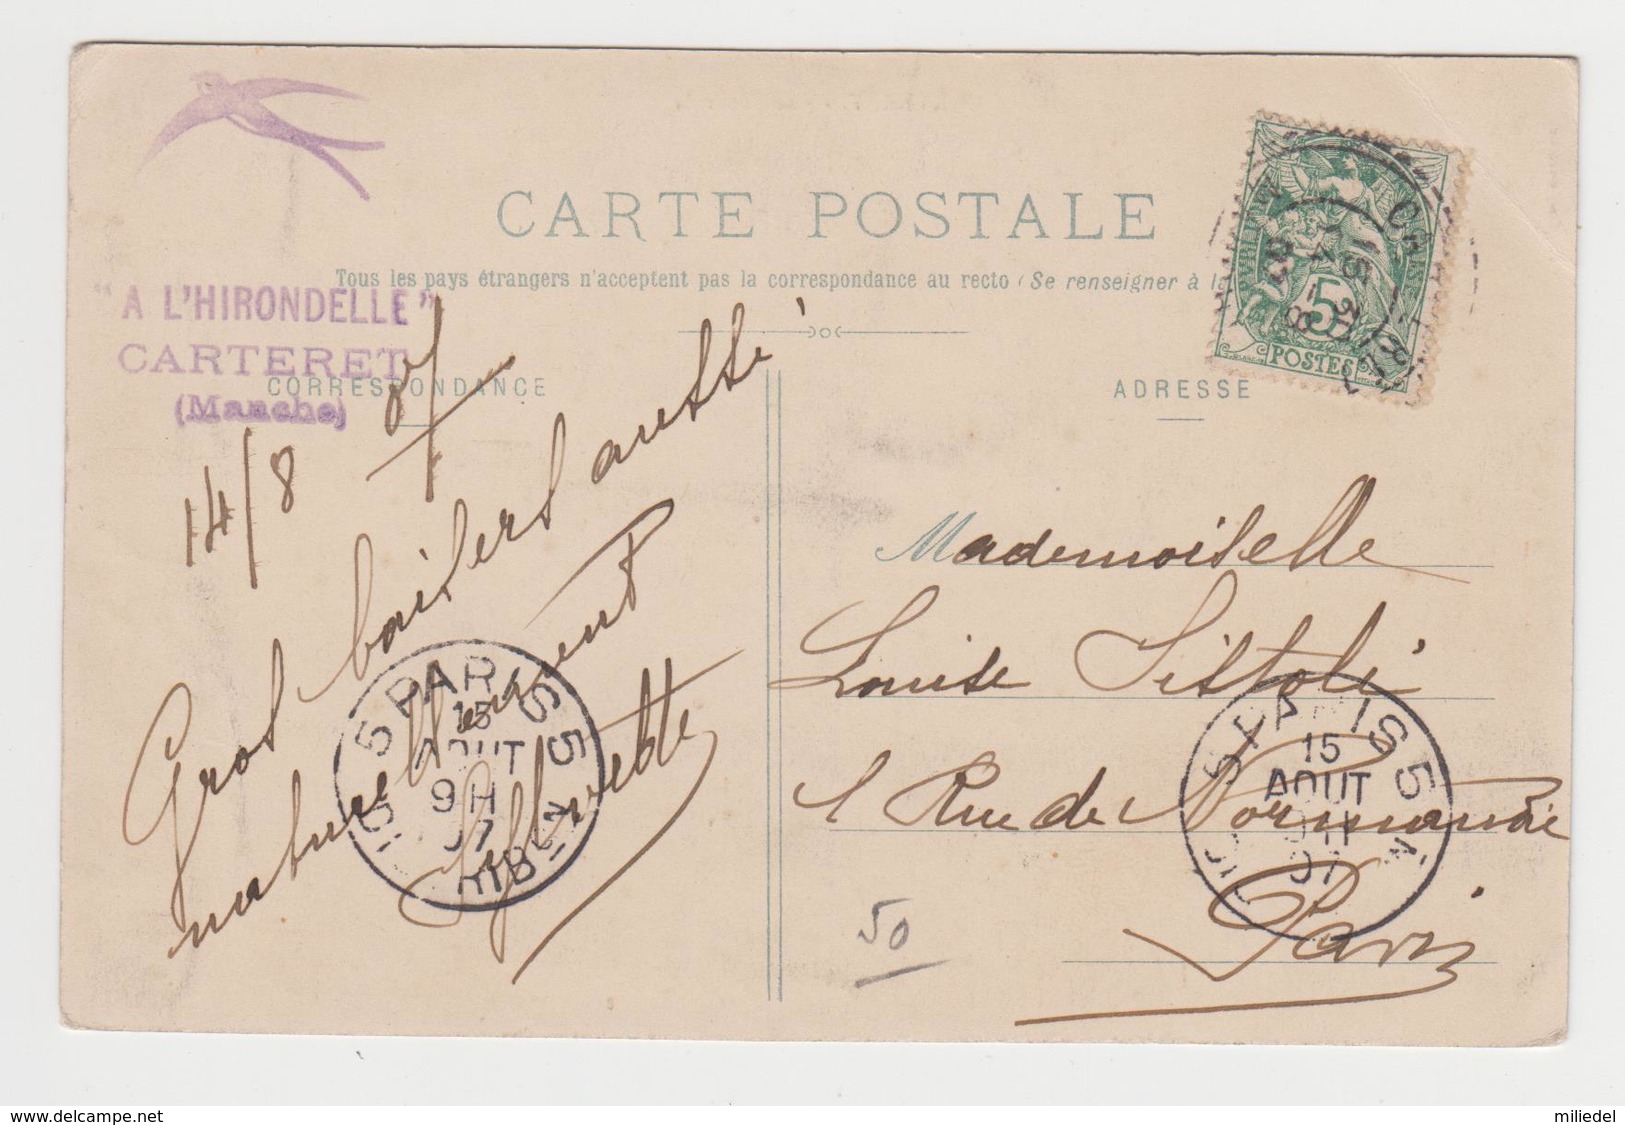 CARTE POSTALE
Tous les pays étrangers n'acceptent pas la correspondance au recto (Se renseigner à la
"A L'HIRONDELLE"
CARTERET
(Manche)
CORRESPONDANCE
ADRESSE
14/8 07
Gros baisers aussi
naturellement
POSTES
5
Mademoiselle
Louise Sistoli
1 Rue de Normandie
Paris
PARIS 5
15
AOUT
9H
07
PARIS 5
15
AOUT
07
50
www.delcampe.net
miliedel